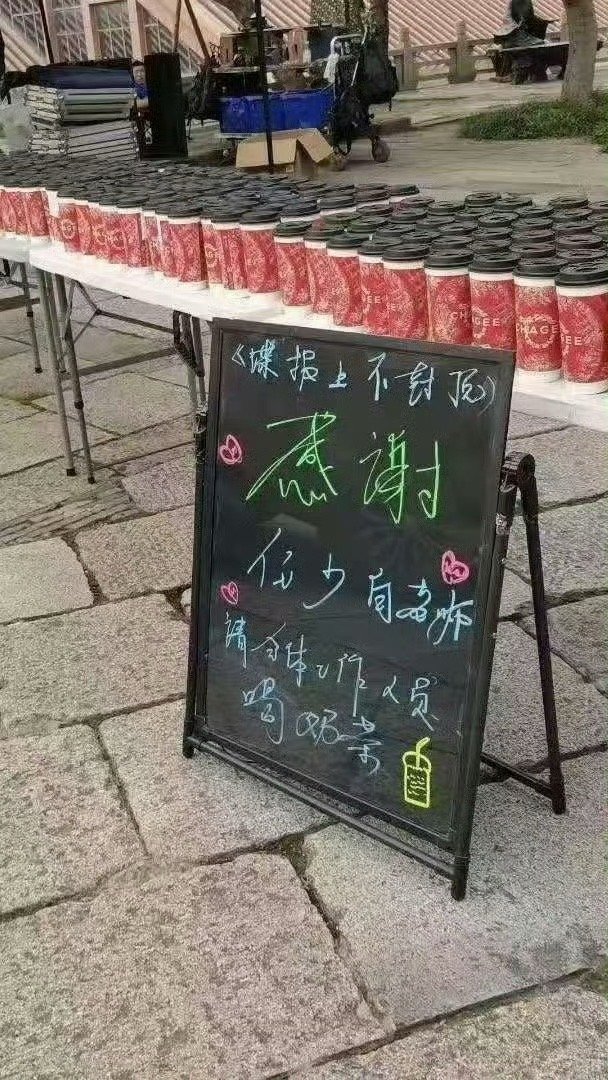 CHAGEE
CHAGEE
《谍报上不封顶》
感谢
任少白老师
请全体工作人员
喝奶茶